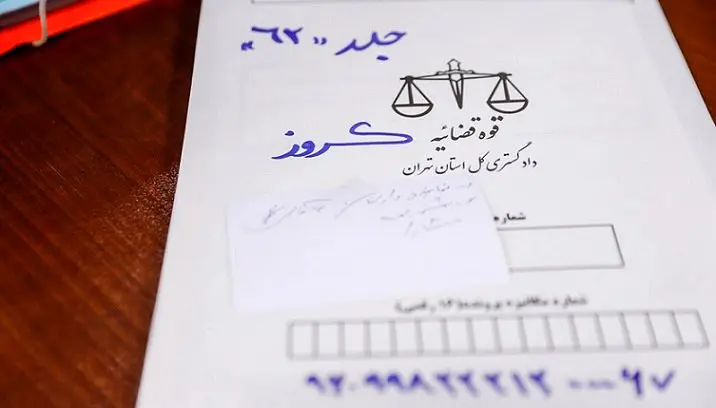 جلد «۶۲»
قوه قضائیه
کروز
دادگستری کل استان تهران
شماره
شماره مکانیزه پرونده (۱۶ رقمی)
۹۲۰۹۹۸۲۲۲۱۲۰۰۰۶۷